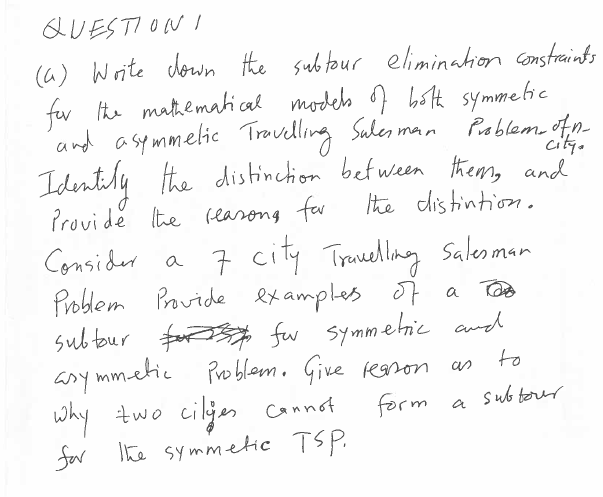 QUESTION 1
(a) Write down the subtour elimination constraints
for the mathematical models of both symmetic
and asymmetic Travelling Salesman Problem of n-
city.
Identify the distinction between them, and
Provide the reasons for the distintion.
Consider a 7 city Travelling Salesman
Problem Provide examples of a
subtour for symmetric and
asymmetic Problem. Give reason as to
why two cities cannot form a subtour
for the symmetic TSP.